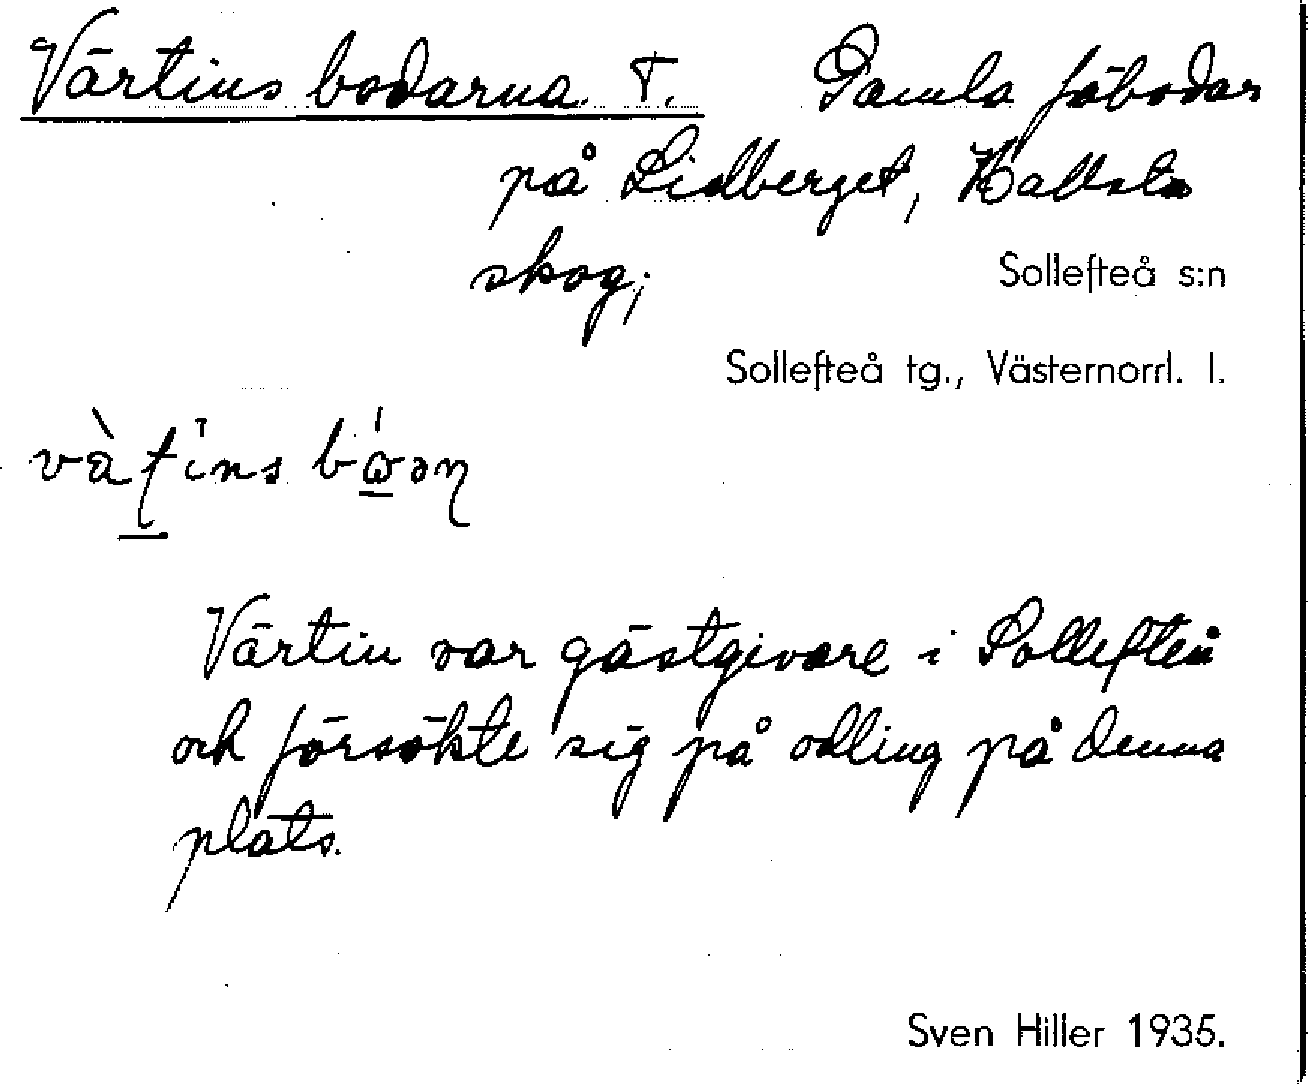 Värtins bodarna. T. Gamla fäbodar
på Lidberget, Hallsta
skog;
Sollefteå s:n
Sollefteå tg., Västernorrl. l.
Värtin var gästgivare i Sollefteå
och försökte sig på odling på denna
plats.
Sven Hiller 1935.